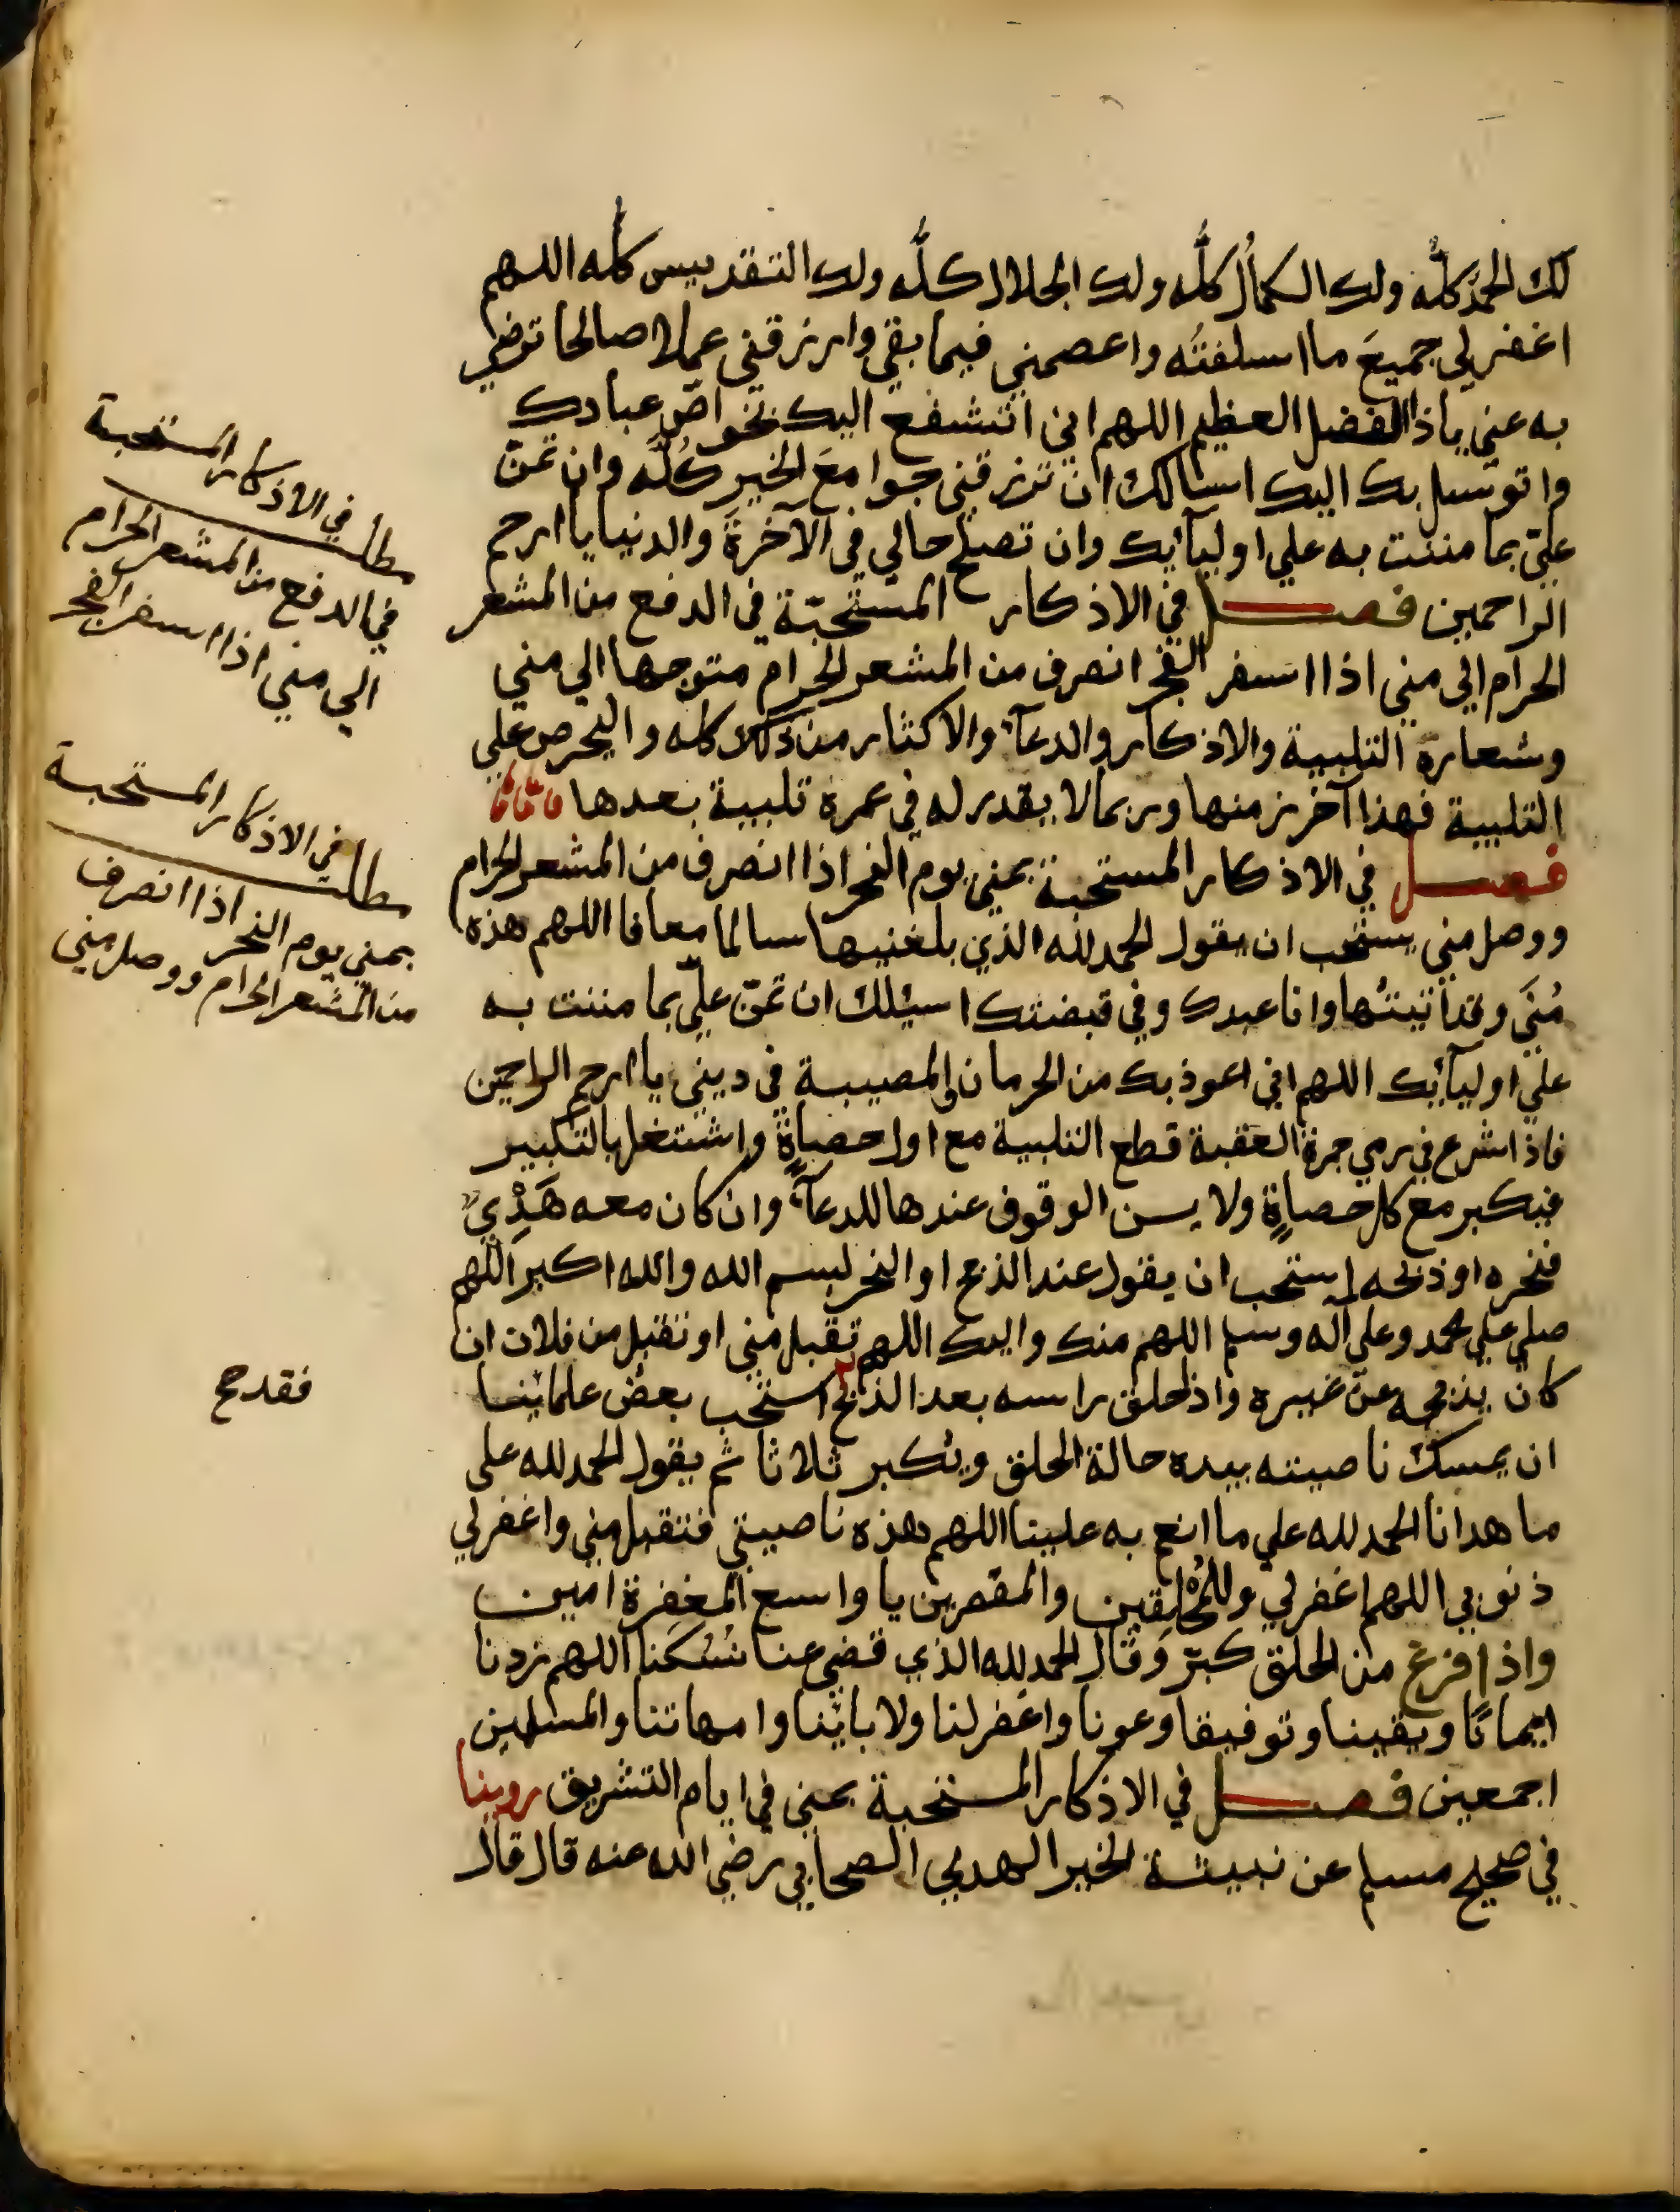 لك الحمدُ كلُّه ولك الكمالُ كلُّه ولك الجلال كلُّه ولك التقديس كله اللهم
اغفر لي جميعَ ما اسلفتُه واعصمني فيما بقي وارزقني عملا صالحا ترضي
به عني ياذا الفضل العظيم اللهم اني اتشفع اليك بخواصّ عبادك
واتوسل بك اليك اسالك ان ترزقني جوامعَ الخير كُلّه وان تمنّ
عليّ بما مننت به علي اوليآئك وان تصلح حالي في الآخرةَ والدنيا يا ارحم
الراحمين فصل في الاذكار المستحبّة في الدفع من المشعر
الحرام الي مني اذا اسفر الفجر انصرف من المشعر الحرام متوجها الي مني
وشعاره التلبية والاذكار والدعآء والاكثار من ذلك كله واليحرص علي
التلبية فهذا آخر زمنها وربما لا يقدر له في عمره تلبية بعدها
فصل في الاذكار المستحبة بمني يوم النحر اذا انصرف من المشعر الحرام
ووصل مني يستحب ان يقول الحمد لله الذي بلغنيها سالما معافا اللهم هذه
مُنَي وقد اتيتُها وانا عبدك وفي قبضتك اسئلك ان تمنّ عليّ بما مننت به
علي اوليآئك اللهم اني اعوذ بك من الحرمان والمصيبة في ديني يا ارحم الراحمين
فاذا شرع في رمي جمرة العقبة قطع التلبية مع اول حصاةٍ واشتغل بالتكبير
فيكبر مع كل حصاةٍ ولا يسن الوقوف عندها للدعآء وان كان معه هَدْيٌ
فنحره او ذبحه استحب ان يقول عند الذبح او النحر بسم الله والله اكبر اللهم
صلي علي محمد وعلي آله وسلم اللهم منك واليك اللهم تقبل مني او تقبل من فلان ان
كان يذبحه عن غيره واذا حلق راسه بعد الذبح استحب بعض علمائنا
ان يمسك ناصيته بيده حالة الحلق ويكبر ثلاثا ثم يقول الحمد لله على
ما هدانا الحمد لله علي ما انعم به علينا اللهم هذه ناصيتي فتقبل مني واغفر لي
ذنوبي اللهم اغفر لي وللمُحلِقين والمقصرين يا واسع المغفرة امين
واذا فرغ من الحلق كبّر وقال الحمد لله الذي قضي عنا نُسُكَنا اللهم زدنا
ايمانًا ويقينا وتوفيقا وعونا واغفر لنا ولابائنا وامهاتنا والمسلمين
اجمعين فصل في الاذكار المستحبة بمني في ايام التشريق روينا
في صحيح مسلم عن نبيشة الخير الهدلي الصحابي رضي الله عنه قال قال
مطلب في الاذكار المستحبة
في الدفع من المشعر الحرام
الي مني اذا اسفر الفجر
مطلب في الاذكار المستحبة
بمني يوم النحر اذا انصرف
من المشعر الحرام ووصل مني
فقد صح